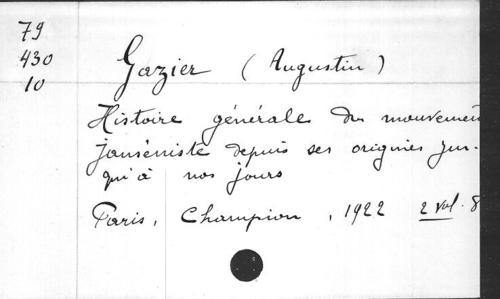 79
430
10
Gazier (Augustin)
Histoire générale du mouvemen
janséniste depuis ses origines jus-
qu'à nos jours
Paris, Champion, 1922 2 vol. 8